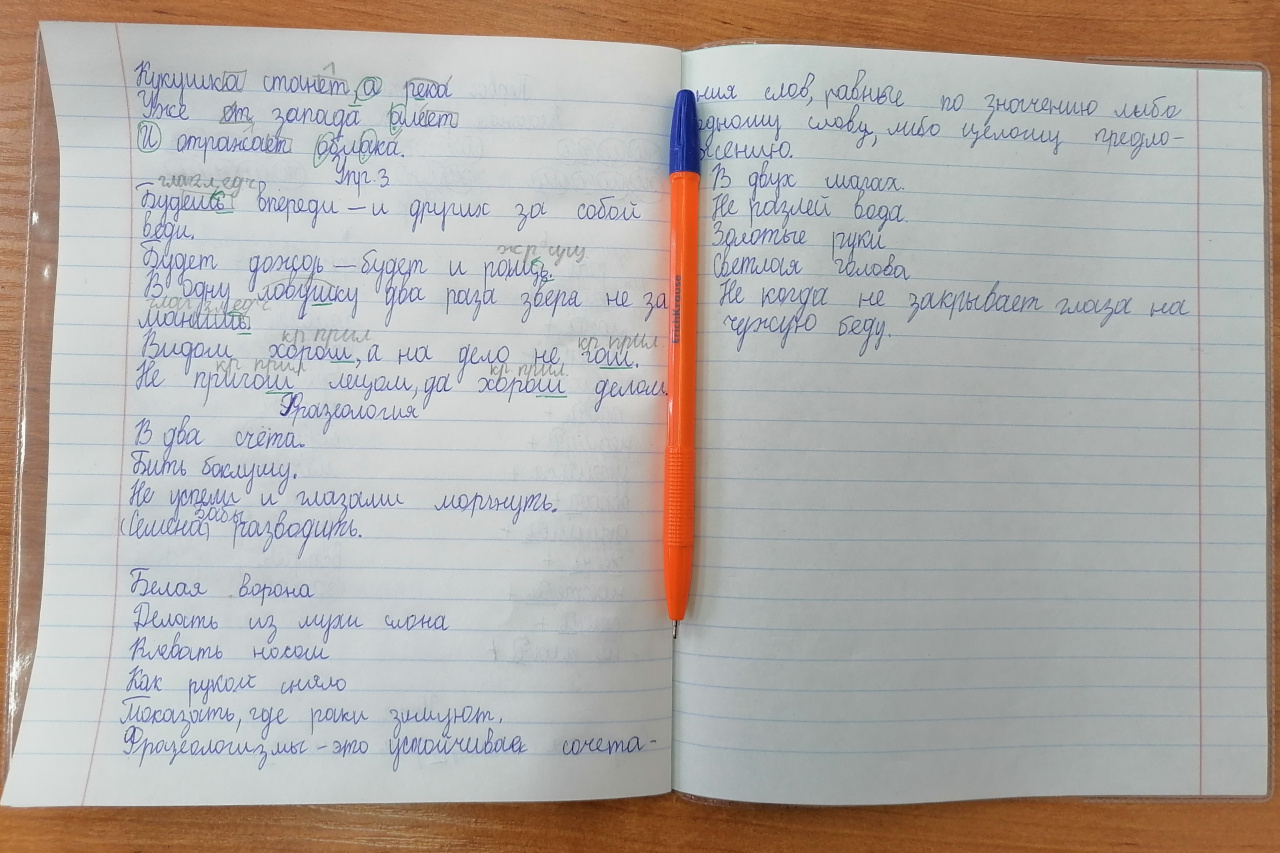 Кукушка стонет, а река
Уже от запада алеет
И отражает облака.
Упр. 3
глаг. л. ед ч
Будешь впереди – и других за собой
веди.
жр сущ
Будет дождь – будет и рощь.
В одну ловушку два раза зверя не за
глаг. л. ед ч
манишь
кр прил кр прил.
Видом хорош, а на дело не гош.
кр прил кр прил.
Не пригош лецом, да хорош делом.
Фразеология
В два счёта.
Бить баклушу.
Не успели и глазами моргнуть.
бобы
(Семена) разводить.
Белая ворона
Делать из мухи слона
Клевать носом
Как рукой сняло
Показать, где раки зимуют.
Фразеологизмы – это устойчивае сочета-
ния слов, равные по значению либо
одному слову, либо целому предло-
жению.
В двух шагах.
Не разлей вода.
Золотые руки
Светлая голова
Не когда не закрывает глаза на
чужую беду.
ErichKrause